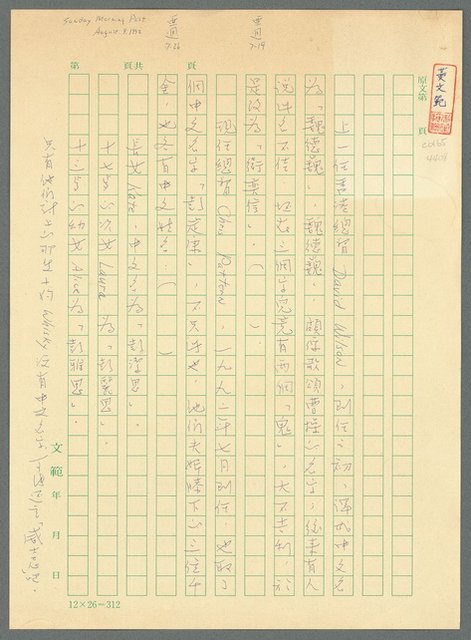 Sunday Morning Post
August 9. 1992
亞週
7-26
亞週
7-19
第
共頁
頁
原文第
頁
黃文範
上一任香港總督 David Wilson，到任之初，譯成中文名
為「魏德巍」，魏德巍，頗像歌頌曹操的名字，後來有人
說此名不佳，坐在三個字竟有兩個「鬼」，大不吉利，於
是改為「衛奕信」。
現任總督 Chris Patten，一九九二年七月到任，也取了
個中文名字「彭定康」，不只如此，他們夫婦膝下的三位千
金，也各有中文姓名。
長女 Kate，中文名為「彭潔思」。
十七歲的次女 Laura 為「彭麗思」。
十三歲的幼女 Alice 為「彭雅思」。
只有他們的 Whisky 沒有中文名字
文範
年
月
日
12×26=312